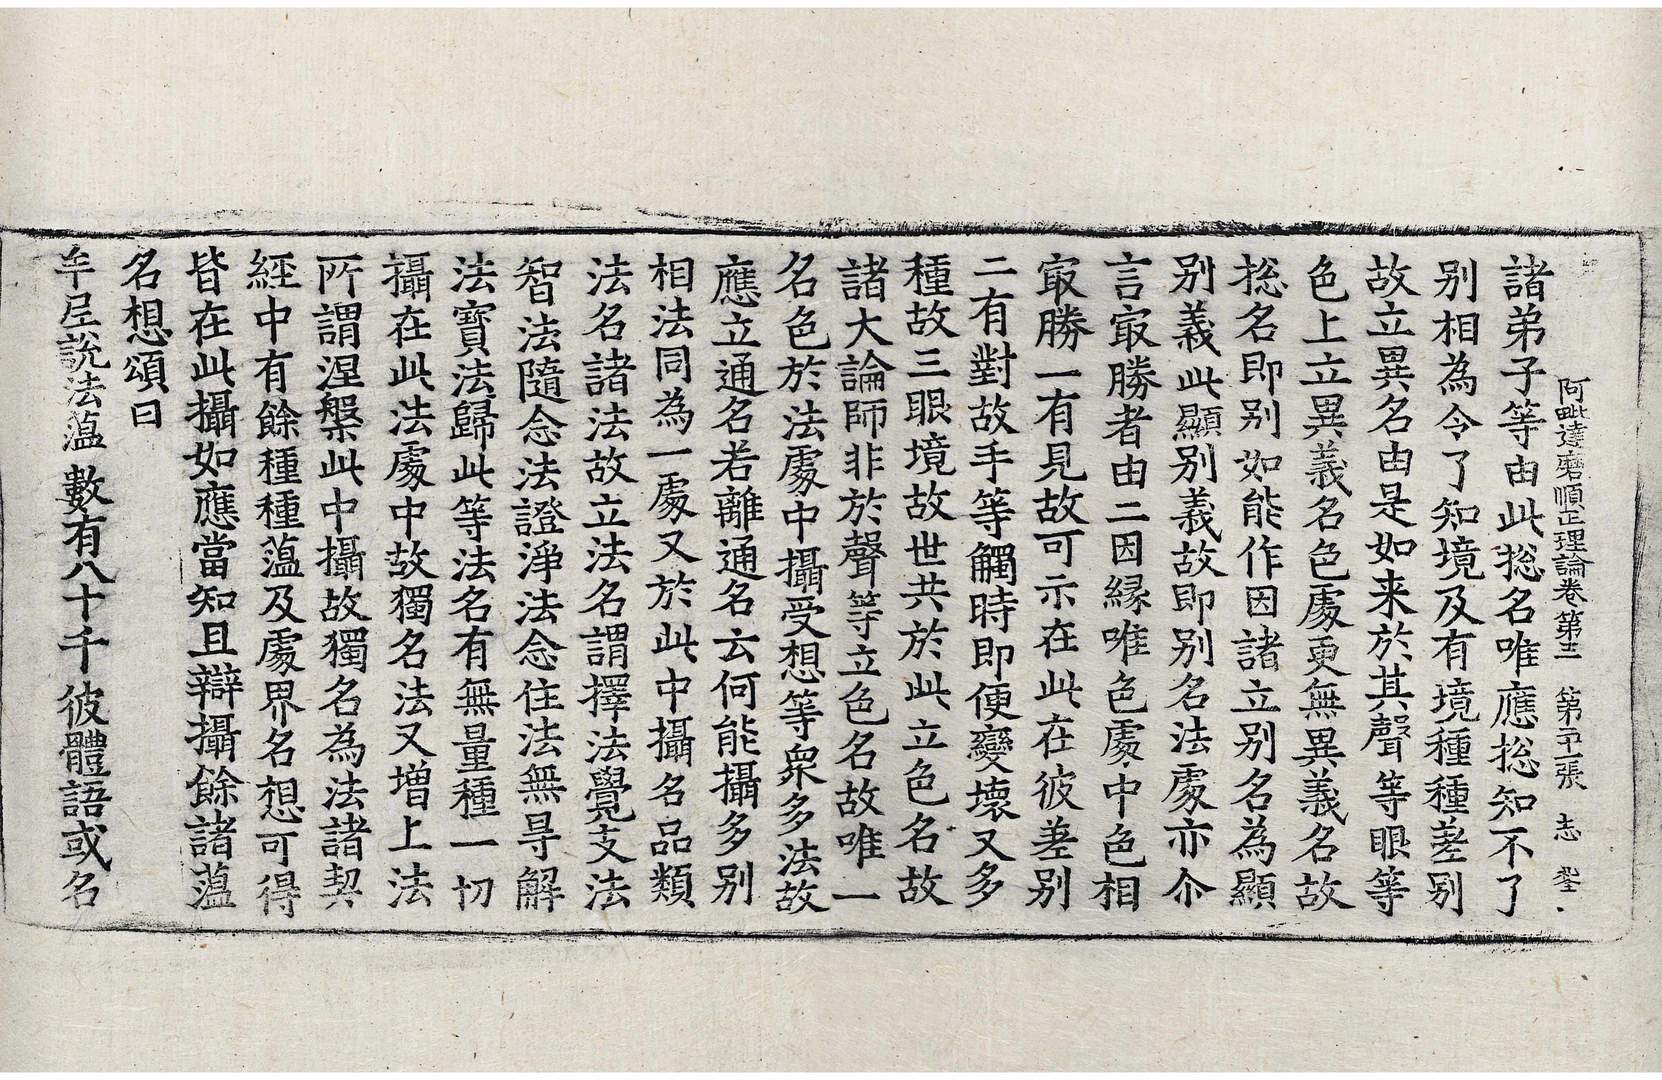 阿毗達磨順正理論卷第三　第二十一張　志
諸弟子等由此総名唯應総知不了
别相為令了知境及有境種種差别
故立異名由是如来於其聲等眼等
色上立異義名色處更無異義名故
総名即别如能作因諸立别名為顯
别義此顯别義故即别名法處亦尒
言㝡勝者由二因縁唯色處中色相
㝡勝一有見故可示在此在彼差别
二有對故手等觸時即便變壞又多
種故三眼境故世共於此立色名故
諸大論師非於聲等立色名故唯一
名色於法處中攝受想等衆多法故
應立通名若離通名云何能攝多别
相法同為一處又於此中攝名品類
法名諸法故立法名謂擇法覺支法
智法隨念法證淨法念住法無㝵解
法寶法歸此等法名有無量種一切
攝在此法處中故獨名法又增上法
所謂涅槃此中攝故獨名為法諸契
經中有餘種種蕰及處界名想可得
皆在此攝如應當知且辯攝餘諸蕰
名想頌曰
牟尼說法蕰　數有八十千　彼體語或名